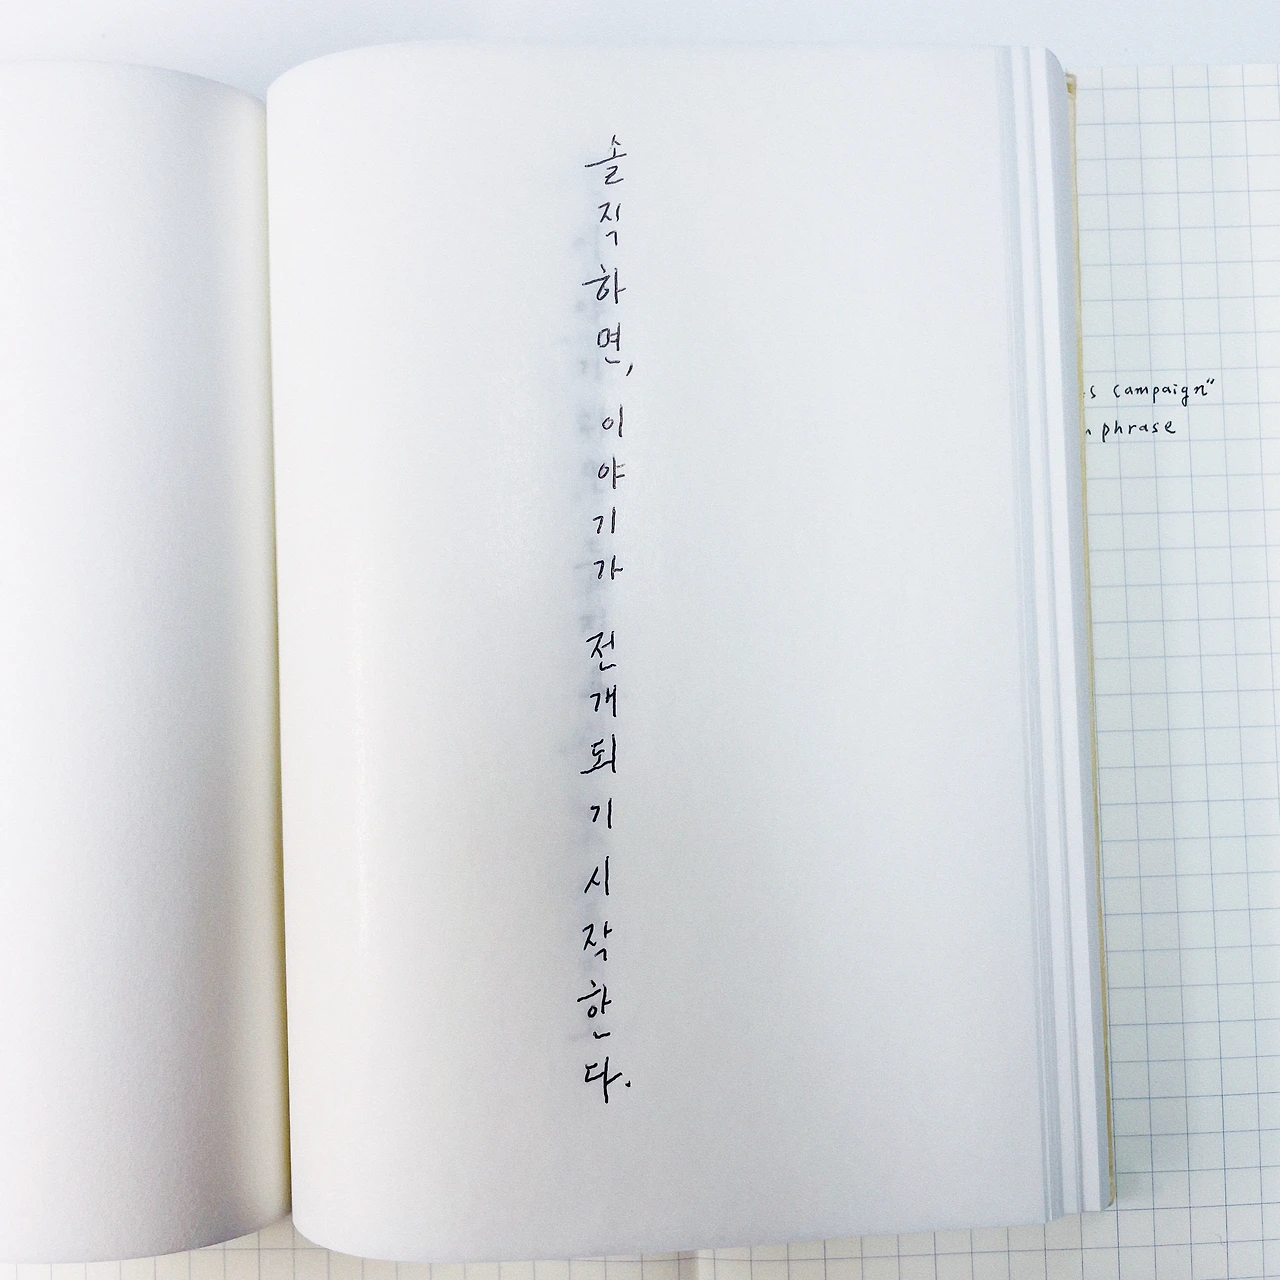 솔직하면, 이야기가 전개되기 시작한다.
campaign"
phrase